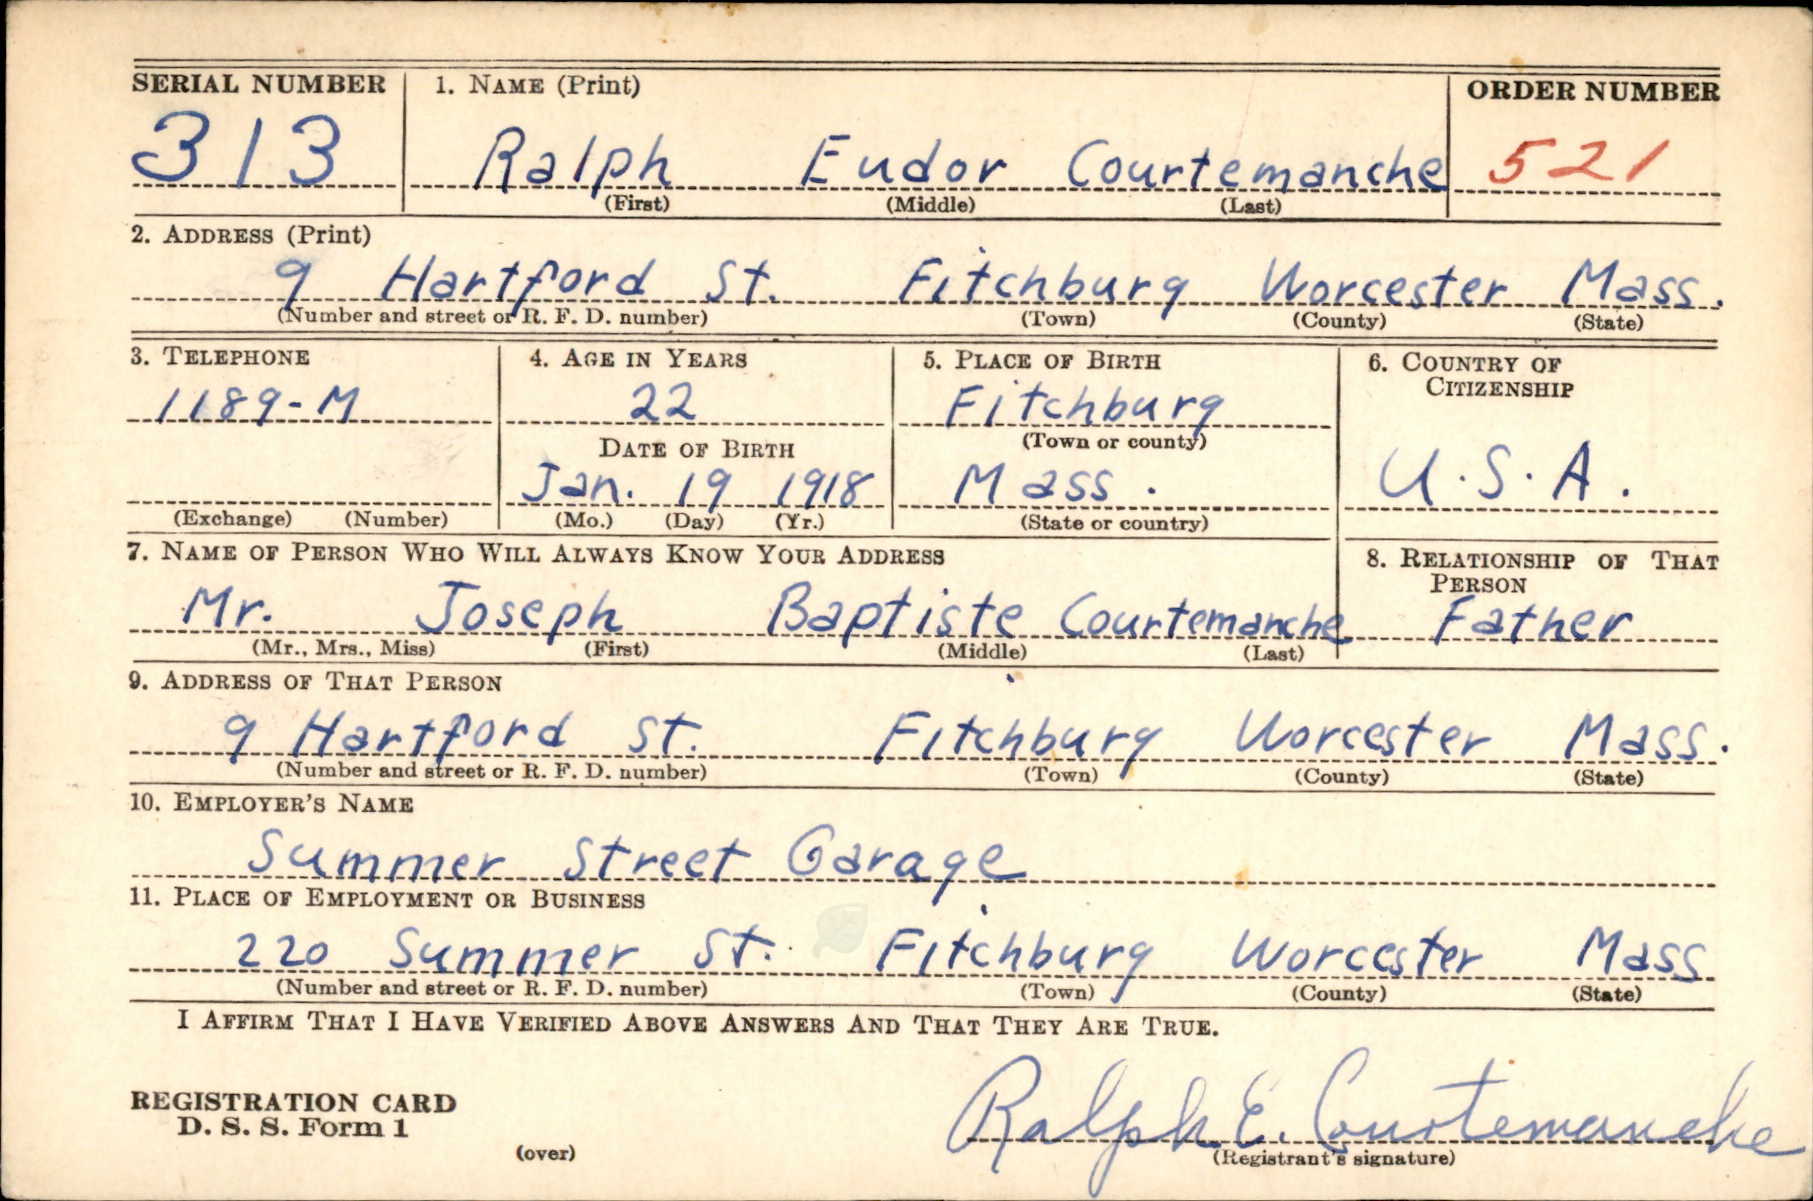 SERIAL NUMBER 1. NAME (Print) ORDER NUMBER
313 Ralph Eudor Courtemanche 521
(First) (Middle) (Last)
2. ADDRESS (Print)
9 Hartford St. Fitchburg Worcester Mass.
(Number and street or R. F. D. number) (Town) (County) (State)
3. TELEPHONE 4. AGE IN YEARS 5. PLACE OF BIRTH 6. COUNTRY OF
CITIZENSHIP
1189-M 22 Fitchburg
DATE OF BIRTH (Town or county)
Jan. 19 1918 Mass. U.S.A.
(Exchange) (Number) (Mo.) (Day) (Yr.) (State or country)
7. NAME OF PERSON WHO WILL ALWAYS KNOW YOUR ADDRESS 8. RELATIONSHIP OF THAT
PERSON
Mr. Joseph Baptiste Courtemanche Father
(Mr., Mrs., Miss) (First) (Middle) (Last)
9. ADDRESS OF THAT PERSON
9 Hartford St. Fitchburg Worcester Mass.
(Number and street or R. F. D. number) (Town) (County) (State)
10. EMPLOYER'S NAME
Summer Street Garage
11. PLACE OF EMPLOYMENT OR BUSINESS
220 Summer St. Fitchburg Worcester Mass
(Number and street or R. F. D. number) (Town) (County) (State)
I AFFIRM THAT I HAVE VERIFIED ABOVE ANSWERS AND THAT THEY ARE TRUE.
REGISTRATION CARD
D. S. S. Form 1 Ralph E. Courtemanche
(over) (Registrant's signature)